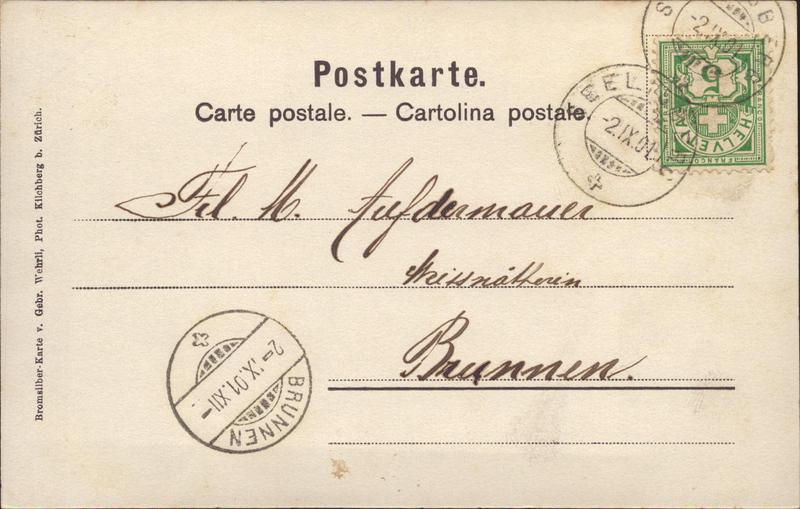 Postkarte.
Carte postale. — Cartolina postale.
Frl. M. Aufdermauer
Weissnätherin
Brunnen.
Bromsilber-Karte v. Gebr. Wehrli, Phot. Kilchberg b. Zürich.
-2.IX.01
-2.IX.01.
5
HELVETIA
FRANCO
2-.IX.01.XII-
BRUNNEN